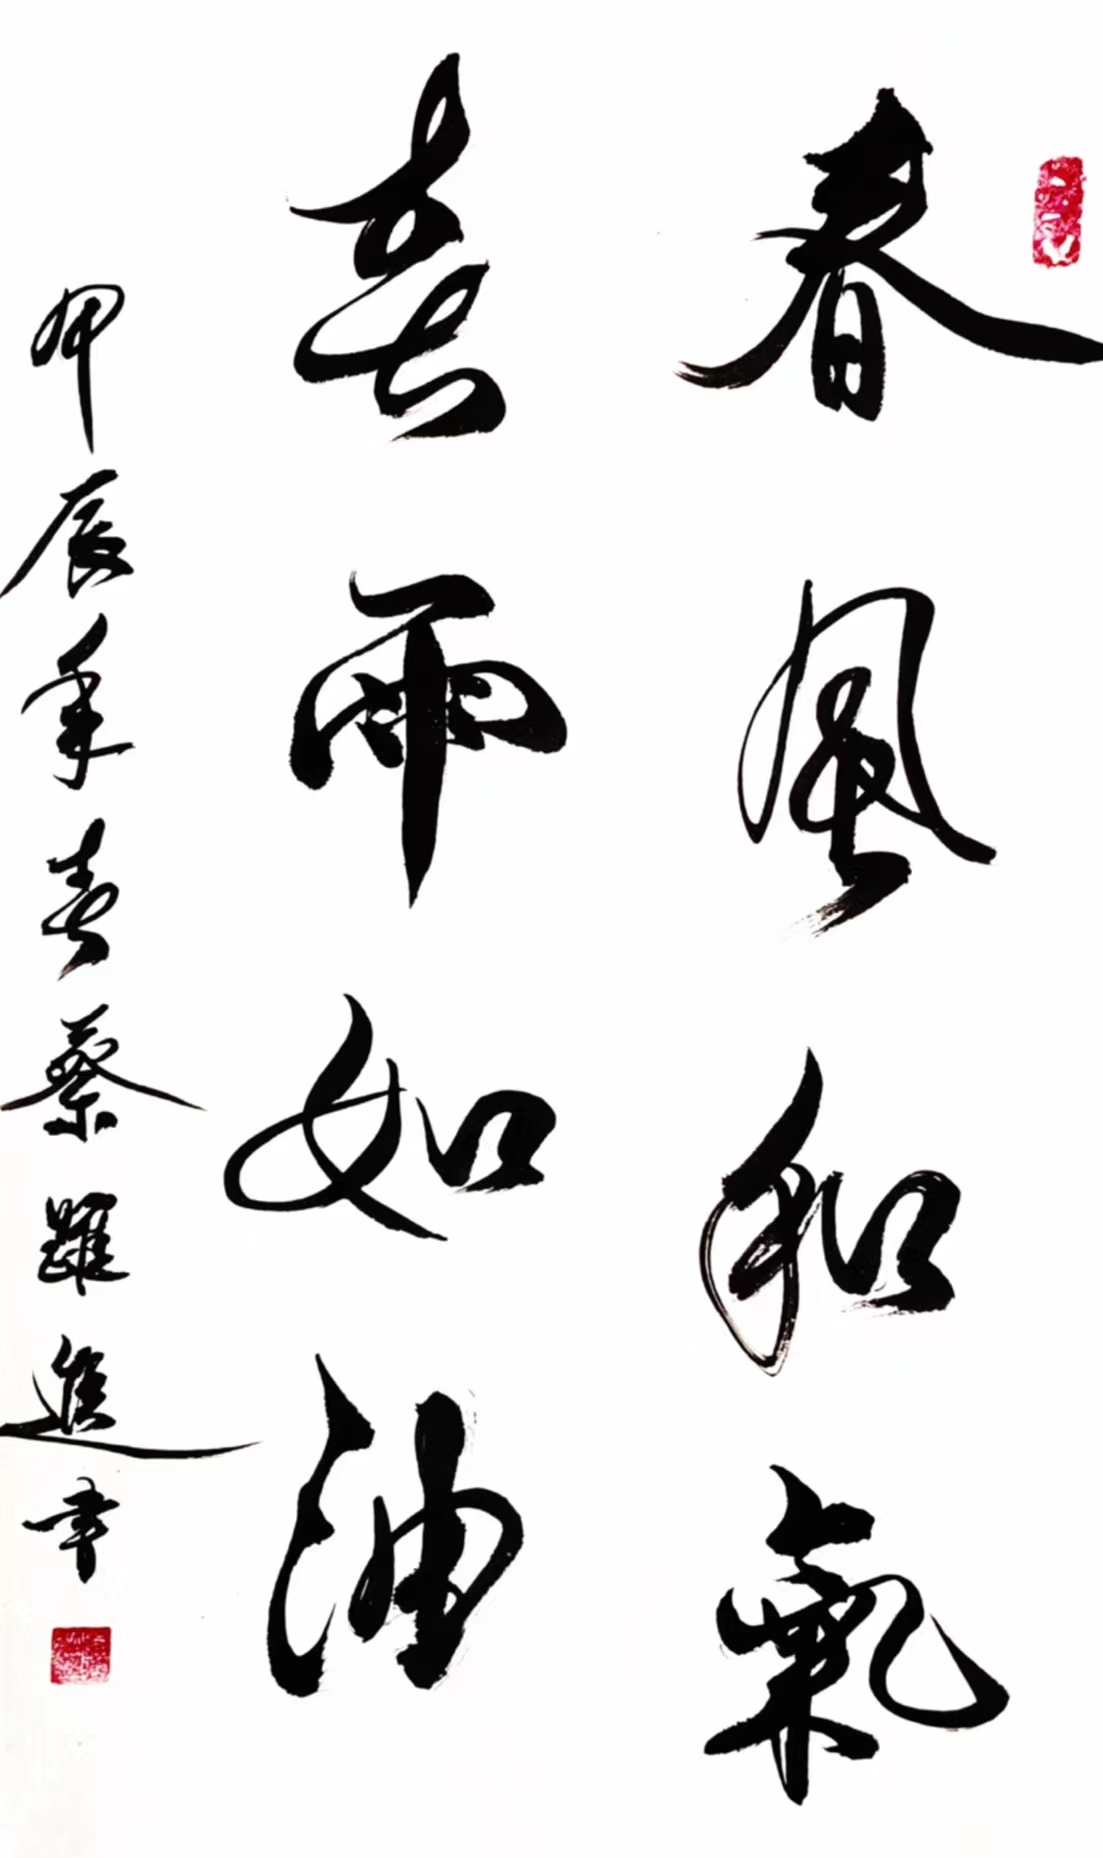 春風和氣
春雨如油
甲辰年春蔡躍進書